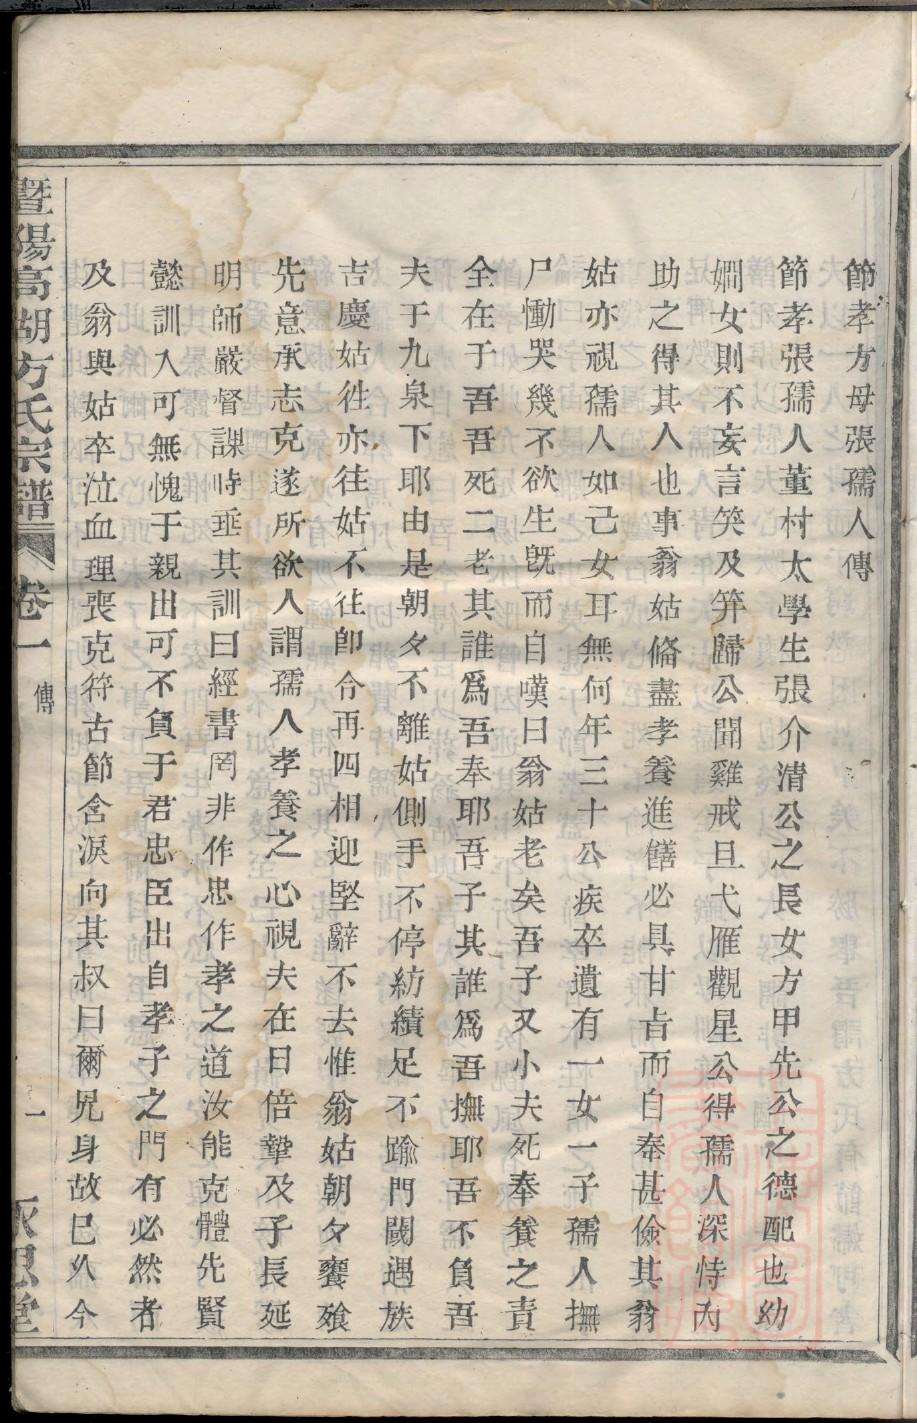 節孝方母張孺人傳
節孝張孺人董村太學生張介清公之長女方甲先公之德配也幼
嫻女則不妄言笑及笄歸公聞雞戒旦弋雁觀星公得孺人深恃內
助之得其人也事翁姑備盡孝養進饍必具甘旨而自奉甚儉其翁
姑亦視孺人如己女耳無何年三十公疾卒遺有一女一子孺人撫
尸慟哭幾不欲生既而自嘆曰翁姑老矣吾子又小夫死奉養之責
全在于吾吾死二老其誰爲吾奉耶吾子其誰爲吾撫耶吾不負吾
夫于九泉下耶由是朝夕不離姑側手不停紡績足不踰門閾遇族
吉慶姑徃亦往姑不往卽令再四相迎堅辭不去惟翁姑朝夕饔飱
先意承志克遂所欲人謂孺人孝養之心視夫在日倍摯及子長延
明師嚴督課時垂其訓曰經書罔非作忠作孝之道汝能克體先賢
懿訓入可無愧于親出可不負于君忠臣出自孝子之門有必然者
及翁與姑卒泣血理喪克符古節含淚向其叔曰爾兄身故已久今
暨陽高湖方氏宗譜 卷一 傳 一 永思堂